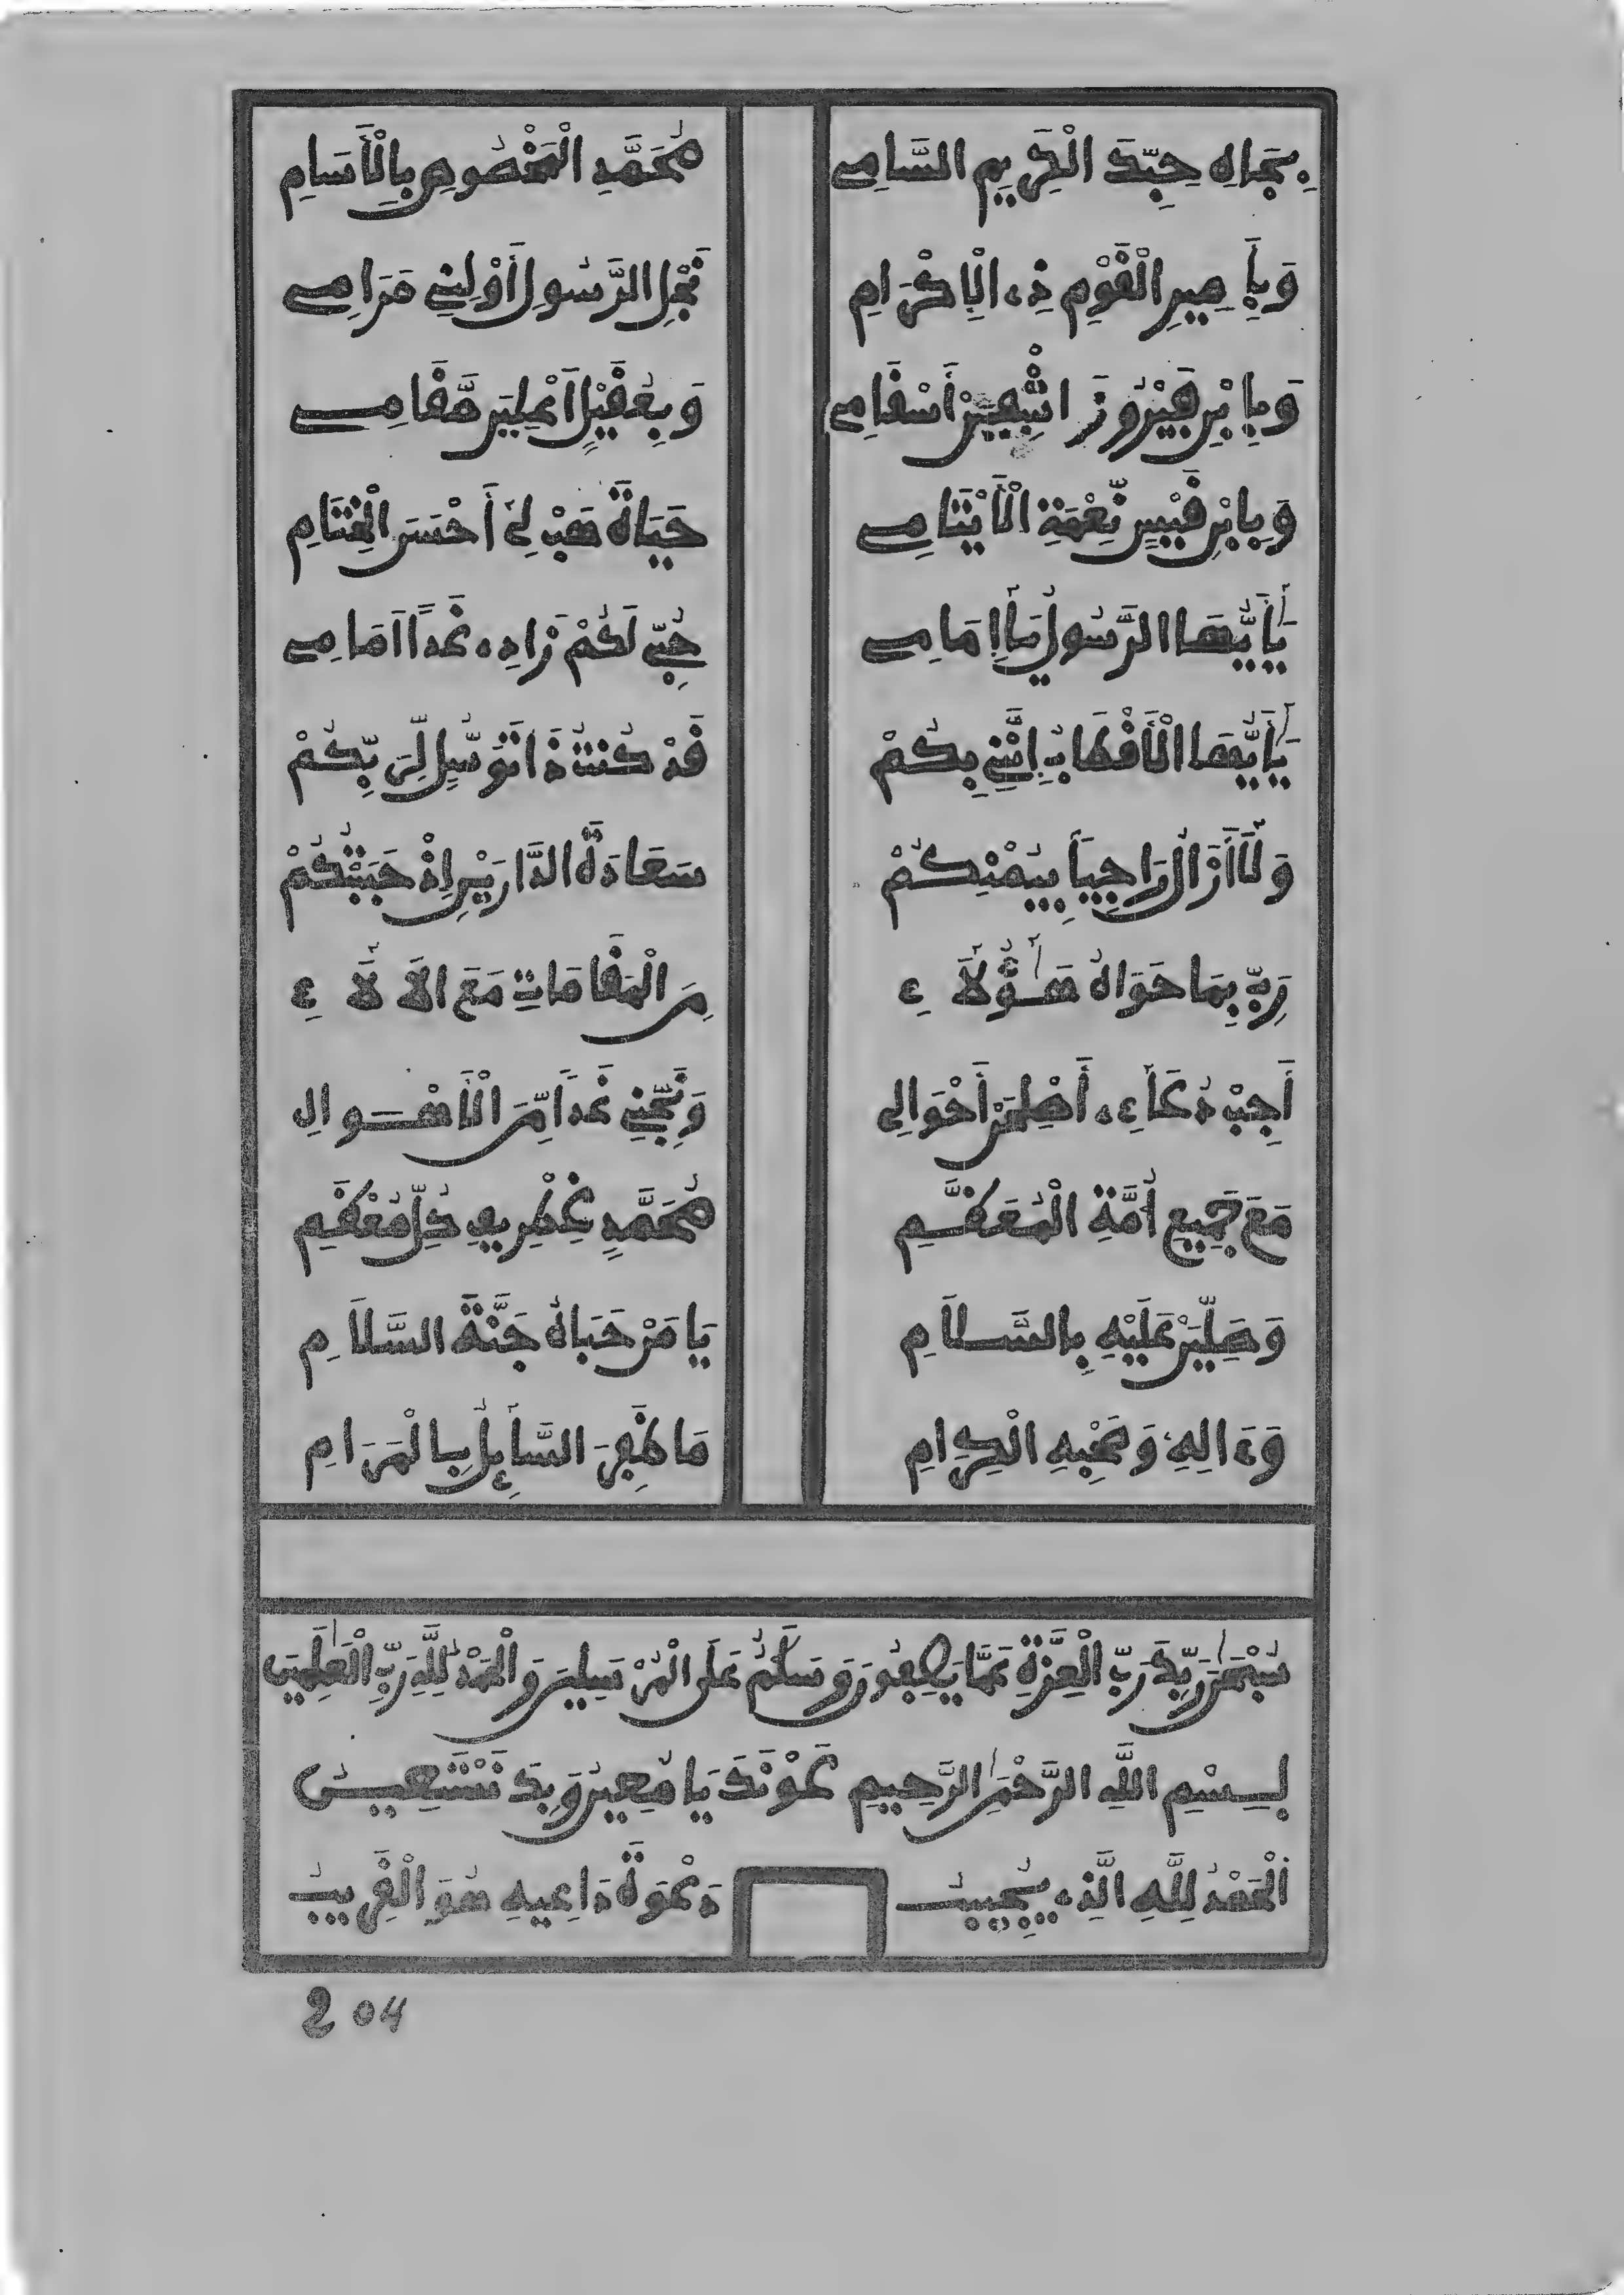 بِجَاهِ حِبِّكَ الْكَرِيمِ السَّامِي مُحَمَّدِ الْمَخْصُوصِ بِالْأَسَامِ
وَبِأَمِيرِ الْقَوْمِ ذِي الْإِكْرَامِ نَجْلِ الرَّسُولِ أَوْلِنِي مَرَامِي
وَبِابْنِ فَيْرُوزَ اشْفِيَنْ أَسْقَامِي وَبِعَقِيلٍ أَعْلِيَنْ مَّقَامِي
وَبِابْنِ قَيْسٍ نِّعْمَةِ الْأَيْتَامِي حَيَاةً هَبْ لِي أَحْسَنَ الْخِتَامِ
يَأَيُّهَا الرَّسُولُ يَا إِمَامِي حُبِّي لَكُمْ زَادِي غَدًا أَمَامِي
يَأَيُّهَا الْأَقْطَابُ إِنَّنِي بِكُمْ قَدْ كُنْتُ ذَا تَوَسُّلٍ لِّرَبِّكُمْ
وَلَا أَزَالُ رَاجِيًا بِيُمْنِكُمْ سَعَادَةَ الدَّارَيْنِ إِذْ حَبَبْتُكُمْ
رَبِّ بِمَا حَوَاهُ هَؤُلَاءِ مِنَ الْمَقَامَاتِ مَعَ الْآلَاءِ
أَجِبْ دُعَاءِي أَصْلِحَنْ أَحْوَالِي وَنَجِّنِي غَدًا مِّنَ الْأَهْوَالِ
مَعَ جَمِيعِ أُمَّةِ الْمُعَظَّمِ مُحَمَّدٍ غِطْرِيفِ كُلِّ مُعْظَمِ
وَصَلِّيَنْ عَلَيْهِ بِالسَّلَامِ يَا مَنْ حَبَاهُ جَنَّةَ السَّلَامِ
وَءَالِهِ وَصَحْبِهِ الْكِرَامِ مَا ظَفِرَ السَّائِلُ بِالْمَرَامِ
سُبْحَٰنَ رَبِّكَ رَبِّ الْعِزَّةِ عَمَّا يَصِفُونَ وَسَلَٰمٌ عَلَى الْمُرْسَلِينَ وَالْحَمْدُ لِلَّهِ رَبِّ الْعَٰلَمِينَ
بِسْمِ اللَّهِ الرَّحْمَٰنِ الرَّحِيمِ عَوْنَكَ يَا مُعِينُ وَبِكَ نَسْتَعِينُ
الْحَمْدُ لِلَّهِ الَّذِي يُجِيبُ دَعْوَةَ دَاعِيهِ هُوَ الْقَرِيبُ
204